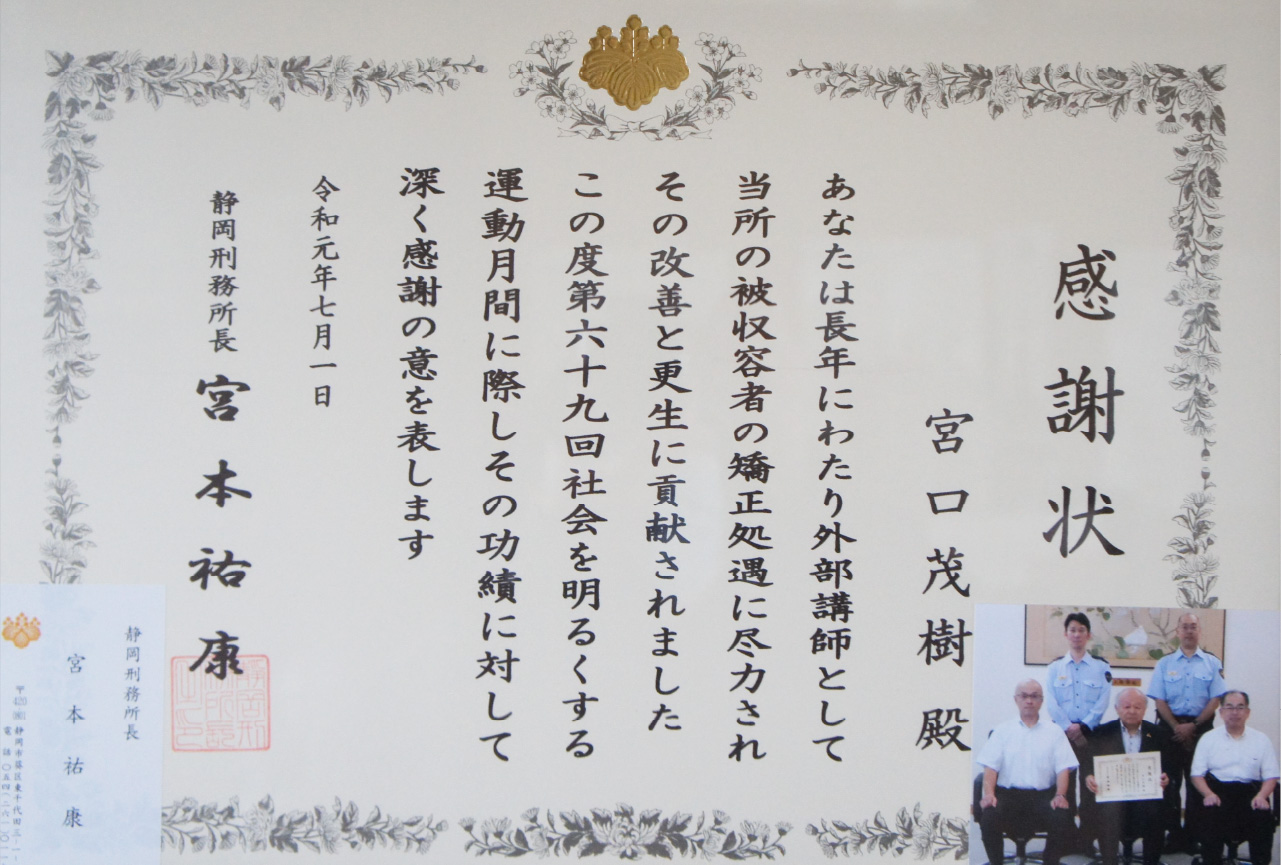 感謝状
宮口茂樹殿
あなたは長年にわたり外部講師として
当所の被収容者の矯正処遇に尽力され
その改善と更生に貢献されました
この度第六十九回社会を明るくする
運動月間に際しその功績に対して
深く感謝の意を表します
令和元年七月一日
静岡刑務所長 宮本祐康
静岡刑務所長
宮本祐康
静岡市葵区東千代田三-一-
電話〇五四(二六一)〇一